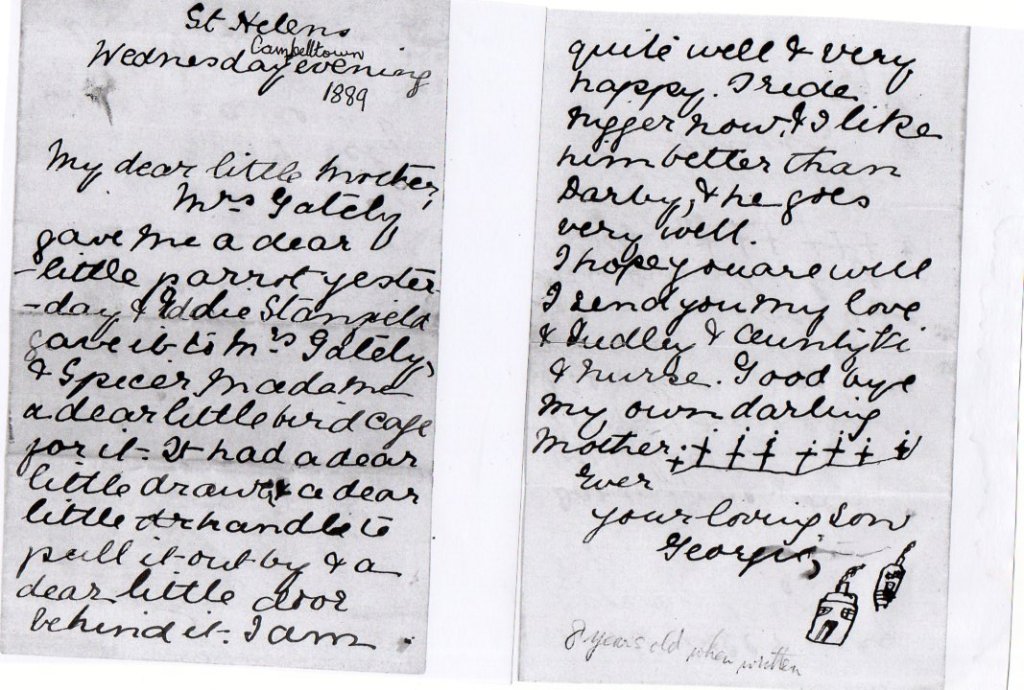 St Helens
Cambelltown
Wednesday evening
1889
My dear little Mother,
Mrs Gately
gave me a dear
-little parrot yester-
-day & Eddie Stanfield
gave it to Mrs Gately,
& Spicer made me
a dear little bird cage
for it - It had a dear
little drawer & a dear
little handle to
pull it out by & a
dear little door
behind it - I am
quite well & very
happy. I ride
Nigger now, & I like
him better than
Darby, & he goes
very well.
I hope you are well
I send you my love
& Dudley &
& Nurse. Good bye
my own darling
Mother.
Ever
your loving Son
Georgie
8 years old when written